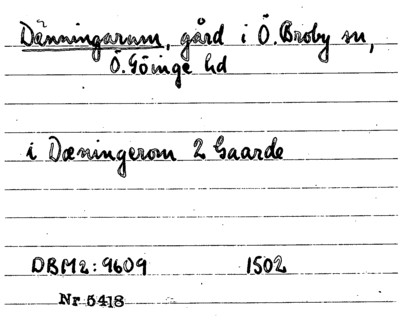 Dänningarum, gård i Ö. Broby sn,
Ö. Göinge hd
i Dæningerom 2 Gaarde
DBM2: 9609 1502
Nr 5418